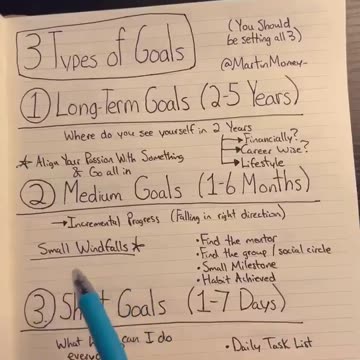 3 Types of Goals
(You Should be setting all 3)
@MartinMoney-
① Long-Term Goals (2-5 Years)
Where do you see yourself in 2 Years
→ Financially?
→ Career Wise?
→ Lifestyle
* Align Your Passion With Something & Go all in
② Medium Goals (1-6 Months)
→ Incremental Progress (Falling in right direction)
Small Windfalls *
• Find the mentor
• Find the group / social circle
• Small Milestone
• Habit Achieved
③ Short Goals (1-7 Days)
What can I do
every
• Daily Task List